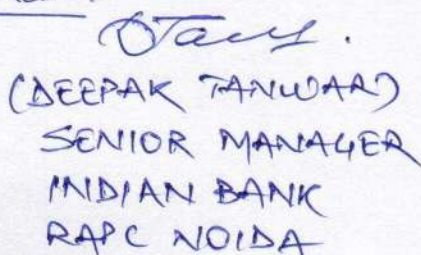 (DEEPAK TANWAR)
SENIOR MANAGER
INDIAN BANK
RAPC NOIDA